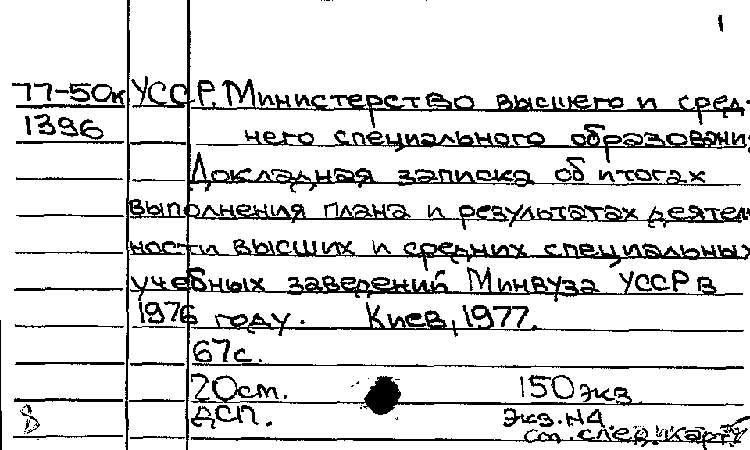 1
77-50к УССР. Министерство высшего и сред-
1396 него специального образовани
Докладная записка об итогах
выполнения плана и результатах деятель
ности высших и средних специальных
учебных заведений Минвуза УССР в
1976 году. Киев, 1977.
67с.
20см. 150 экз
8 ДСП. Экз. N4.
см. след. карту